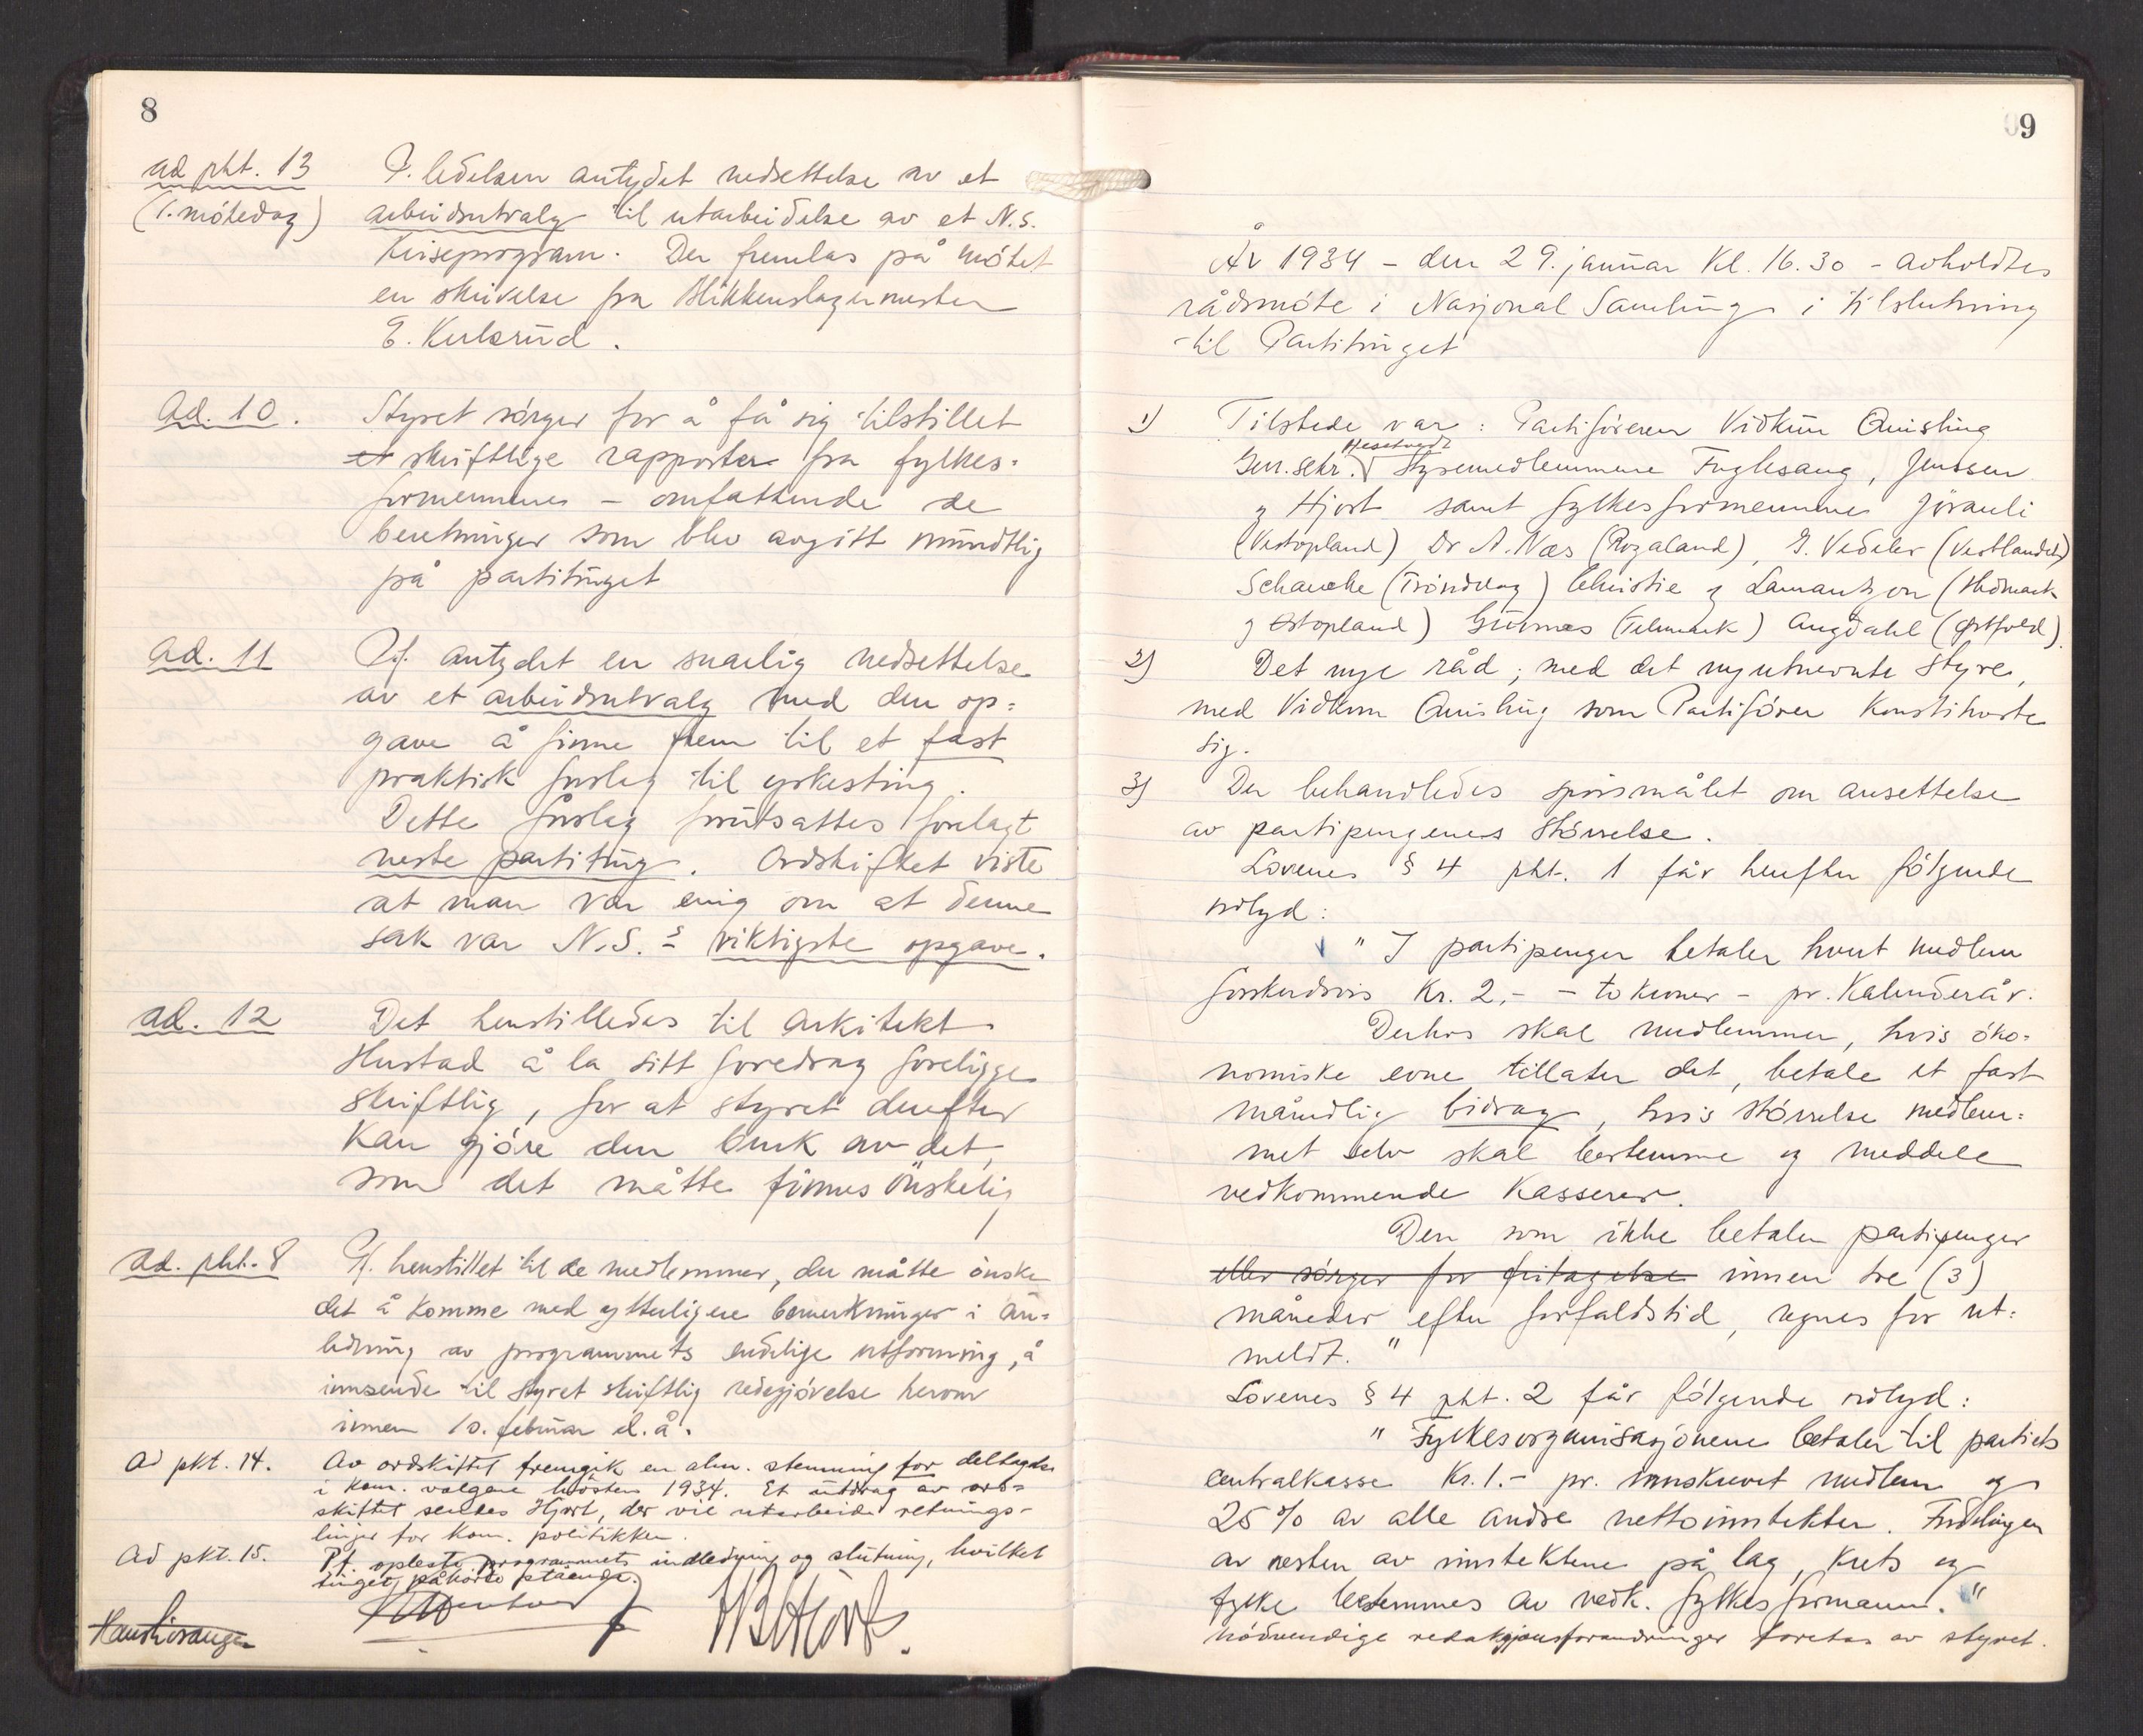 8
ad pkt. 13 P. ledelsen antydet nedsettelse av et
(1. mötedag) arbeidsutvalg til utarbeidelse av et N.S.
Kriseprogram. Der fremlas på mötet
en skrivelse fra blikkenslagermester
E. Kulsrud.
Ad. 10. Styret sörger for å få sig tilstillet
et skriftlige rapporter fra fylkes=
formennene - omfattende de
beretninger som blev avgitt mundtlig
på partitinget
ad. 11 Pf. antydet en snarlig nedsettelse
av et arbeidsutvalg med den op=
gave å finne frem til et fast
praktisk forslag til yrkesting.
Dette forslag forutsattes forelagt
neste partiting. Ordskiftet viste
at man var enig om at denne
sak var N.S.s viktigste opgave.
ad. 12 Det henstilledes til Arkitekt
Hustad å la sitt foredrag foreligge
skriftlig, for at styret derefter
kan gjöre den bruk av det,
som det måtte finnes önskelig
ad. pkt. 8 Pf. henstillet til de medlemmer, der måtte önske
det å komme med ytterligere bemerkninger i an=
ledning av programmets endelige utforming, å
innsende til styret skriftlig redegjörelse herom
innen 10. februar d.å.
Ad pkt. 14. Av ordskiftet fremgik en alm. stemning for deltagelse
i kom. valgene hösten 1934. Et utdrag av ord=
skiftet sendes Hjort, der vil utarbeide retnings-
linjer for kom. politikken.
Ad pkt. 15. Pf. opleste programmets indledning og slutning, hvilket
tinget påhörte stående.
HBHjort.
9
År 1934 - den 29. januar kl. 16.30 - avholdtes
rådsmöte i Nasjonal Samling i tilslutning
til Partitinget
1) Tilstede var: Partiföreren Vidkun Quisling
Hesstvedt
Gen.sekr. Styremedlemmene Fuglesang, Jenssen
og Hjort samt fylkesformennene Jöranli
(Vestopland) Dr A. Næs (Rogaland), G. Vedeler (Vestlandet)
Schancke (Tröndelag) Christie og Lamantzon (Hedmark
og Östopland) Gürnæs (Telemark) Augdahl (Østfold).
2) Det nye råd; med det nyutnevnte styre,
med Vidkun Quisling som Partifører konstituerte
sig.
3) Der behandledes spörsmålet om ansettelse
av partipengenes störrelse.
Lovenes § 4 pkt. 1 får herefter fölgende
ordlyd:
" I partipenger betaler hvert medlem
forskudsvis Kr. 2,- - to kroner - pr. Kalenderår.
Derhos skal medlemmer, hvis öko=
nomiske evne tillater det, betale et fast
månedlig bidrag, hvis störrelse medlem=
met selv skal bestemme og meddele
vedkommende kasserer.
Den som ikke betaler partipenger
eller sörger for fritagelse innen tre (3)
måneder efter forfaldstid, regnes for ut=
meldt. "
Lovenes § 4 pkt. 2 får fölgende ordlyd:
" Fylkesorganisasjonene betaler til partiets
centralkasse Kr. 1.- pr. innskrevet medlem og
25 % av alle andre nettoinntekter. Fordelingen
av resten av inntektene på lag, krets og
fylke bestemmes av vedk. fylkesformann. "
Nödvendige redaksjonsforandringer foretas av styret.